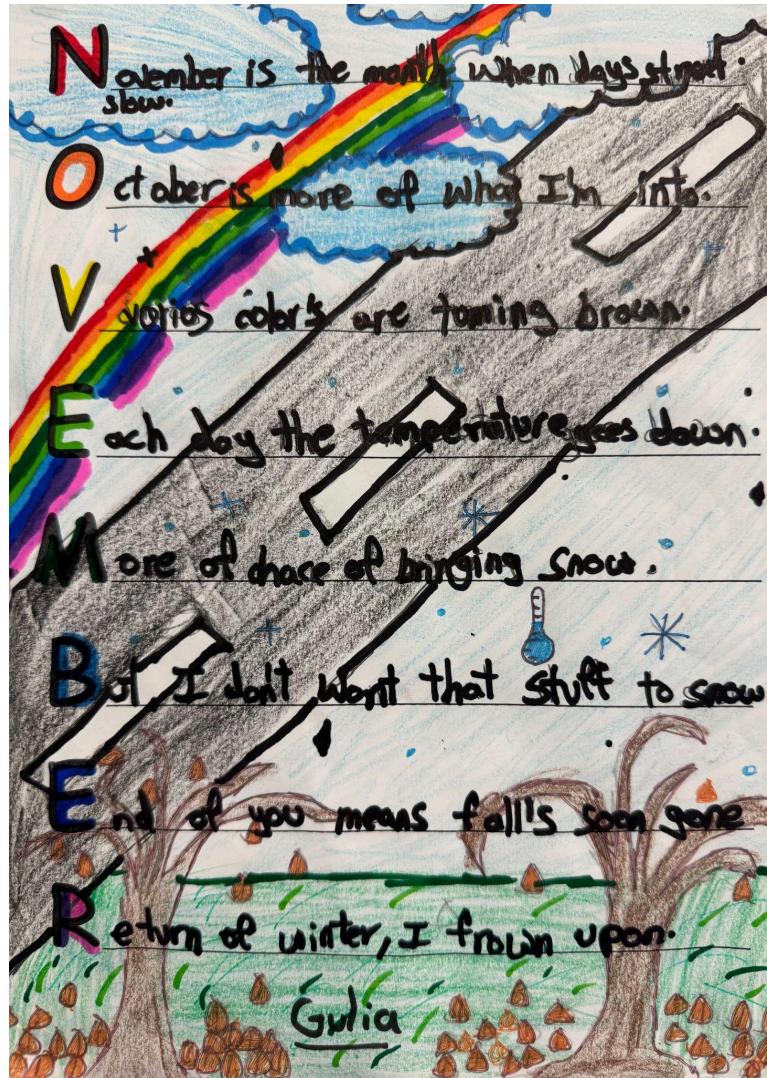 November is the month when days start
slow.
October is more of what I'm into.
Varios color's are torning brown.
Each day the temperature goes down.
More of chace of bringing snow.
But I don't want that stuff to snow
End of you means fall's soon gone
Return of winter, I frown upon.
Gulia